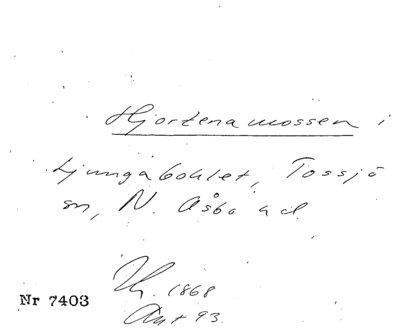 Hjortenamossen i
Ljungabohlet, Tossjö
sn, N. Åsbo hd
1868
Ant 93.
Nr 7403